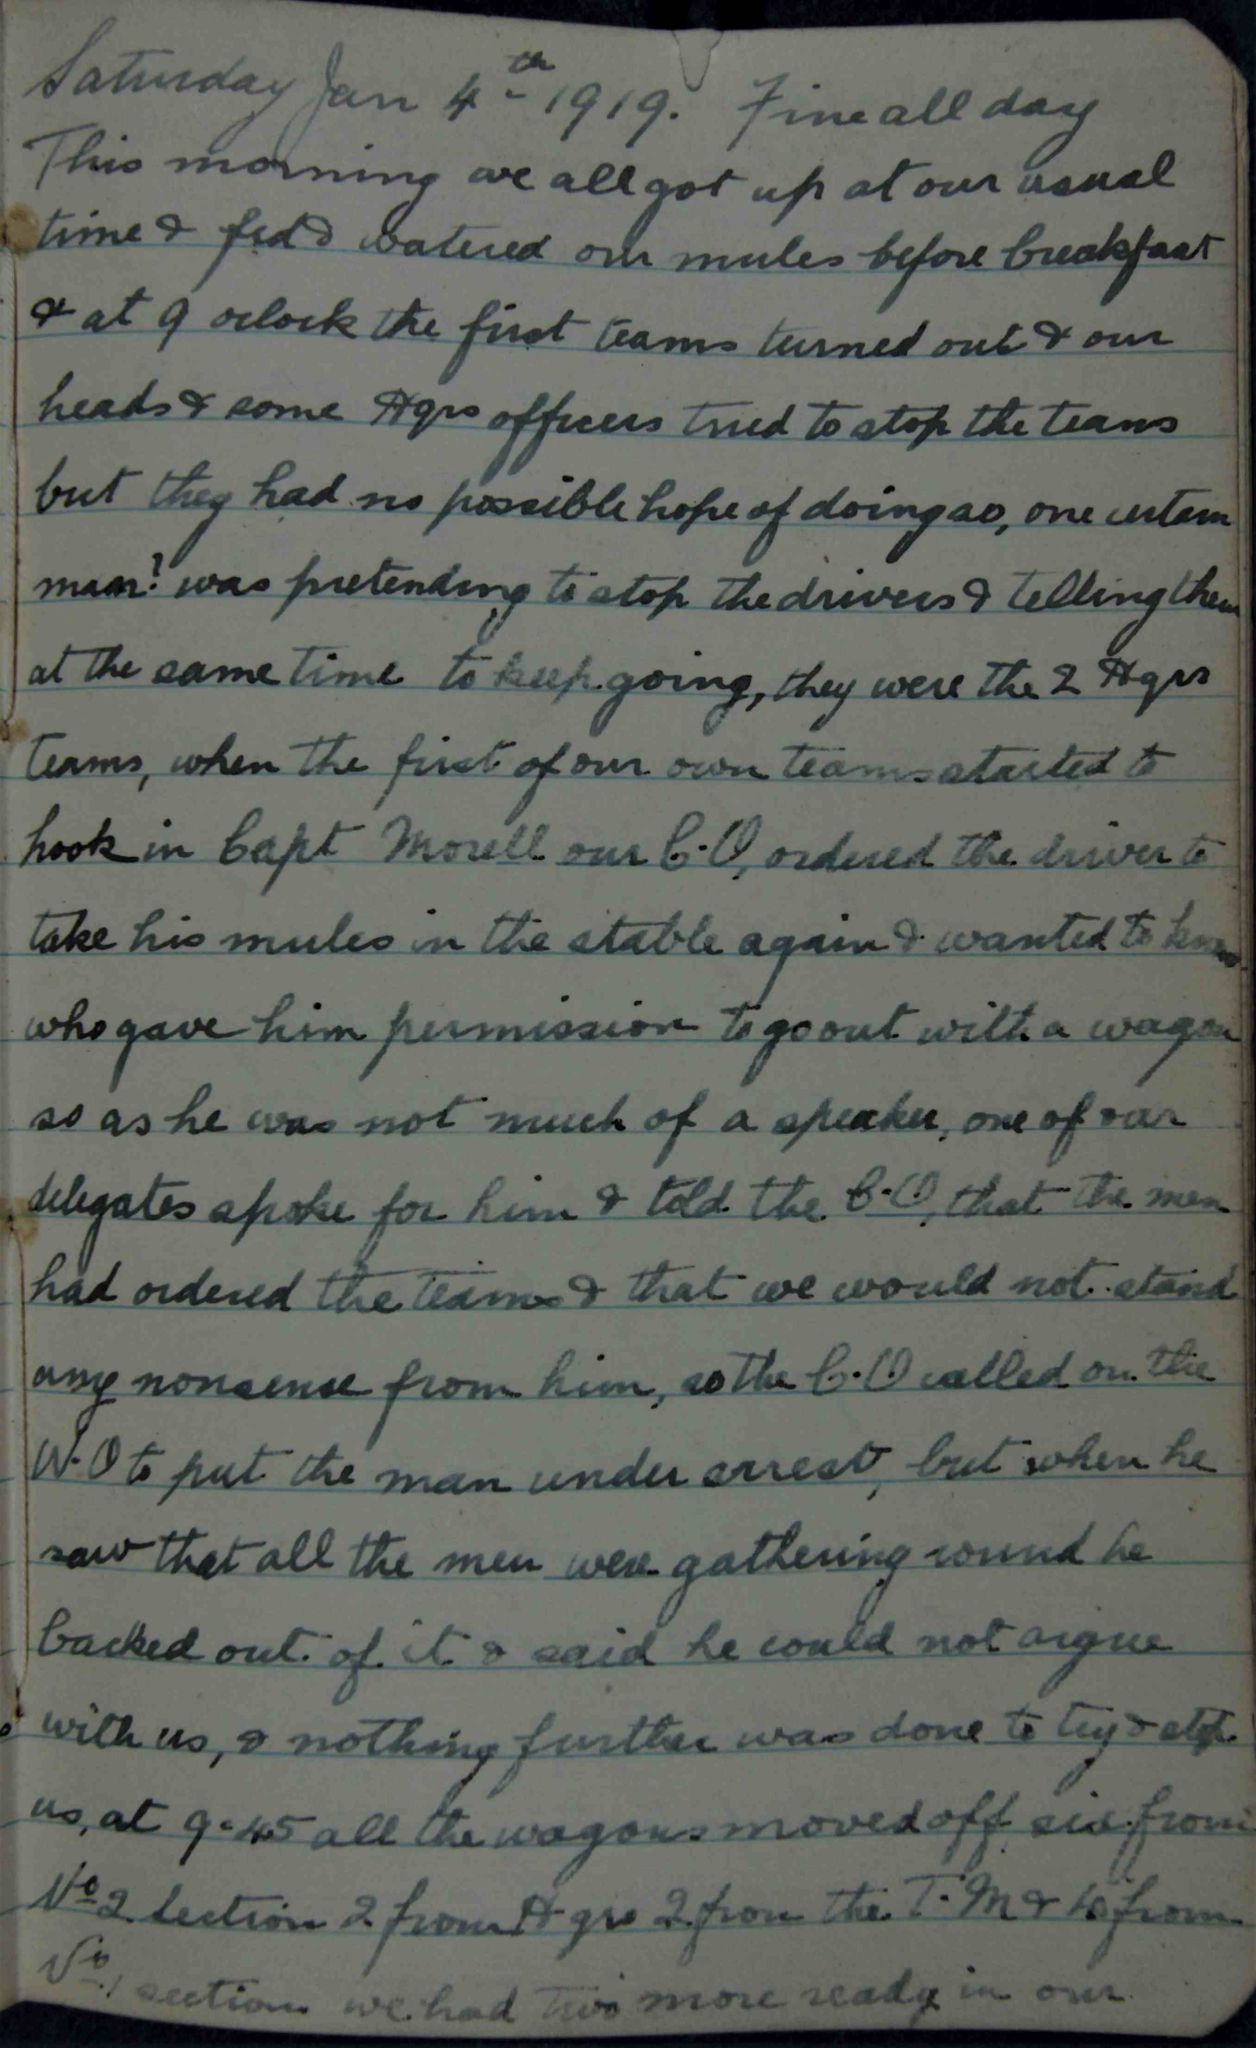 Saturday Jan 4th 1919. Fine all day
This morning we all got up at our usual
time & fed & watered our mules before breakfast
& at 9 oclock the first teams turned out & our
heads & some Hqrs officers tried to stop the teams
but they had no possible hope of doing so, one certain
man? was pretending to stop the drivers & telling them
at the same time to keep going, they were the 2 Hqrs
teams, when the first of our own teams started to
hook in Capt Morell our C.O, ordered the driver to
take his mules in the stable again & wanted to know
who gave him permission to go out with a wagon
so as he was not much of a speaker, one of our
delegates spoke for him & told the C.O, that the men
had ordered the teams & that we would not stand
any nonsense from him, so the C.O called on the
W.O to put the man under arrest, but when he
saw that all the men were gathering round he
backed out of it & said he could not argue
with us, & nothing further was done to try & stop
us, at 9-45 all the wagons moved off six from
No 2 Section 2 from Hqrs 2 from the T.M & 10 from
No 1 section we had two more ready in our